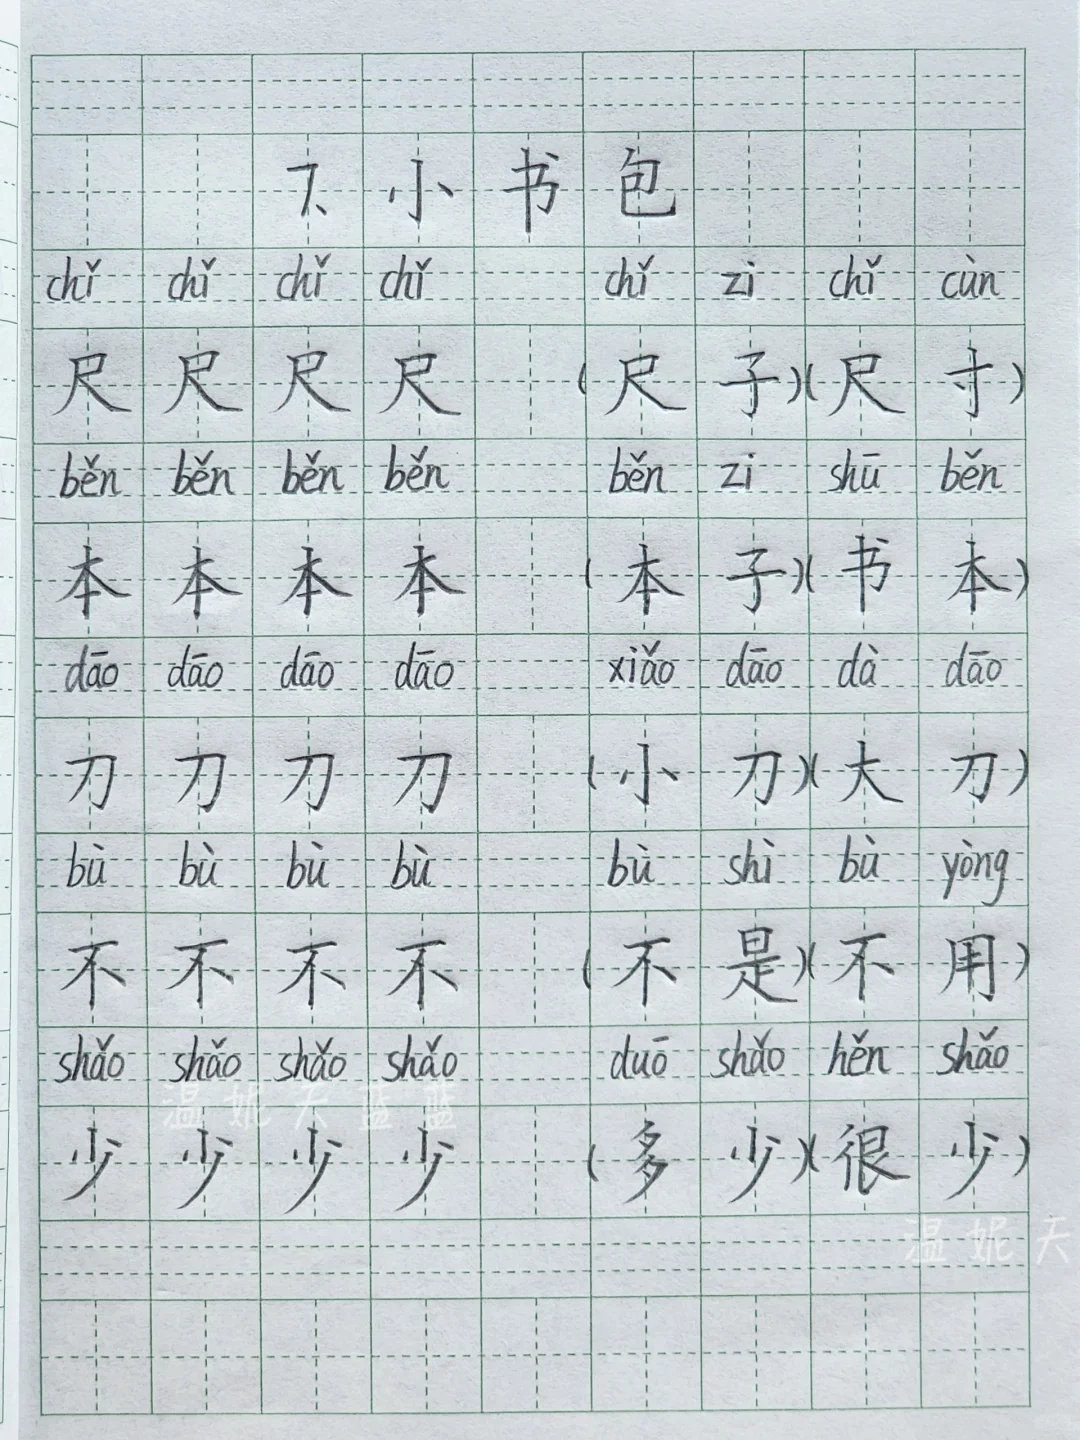 7、小书包
chǐ chǐ chǐ chǐ chǐ zi chǐ cùn
尺 尺 尺 尺 (尺 子)(尺 寸)
běn běn běn běn běn zi shū běn
本 本 本 本 (本 子)(书 本)
dāo dāo dāo dāo xiǎo dāo dà dāo
刀 刀 刀 刀 (小 刀)(大 刀)
bù bù bù bù bù shì bù yòng
不 不 不 不 (不 是)(不 用)
shǎo shǎo shǎo shǎo duō shǎo hěn shǎo
温妮天蓝蓝
少 少 少 少 (多 少)(很 少)
温妮天